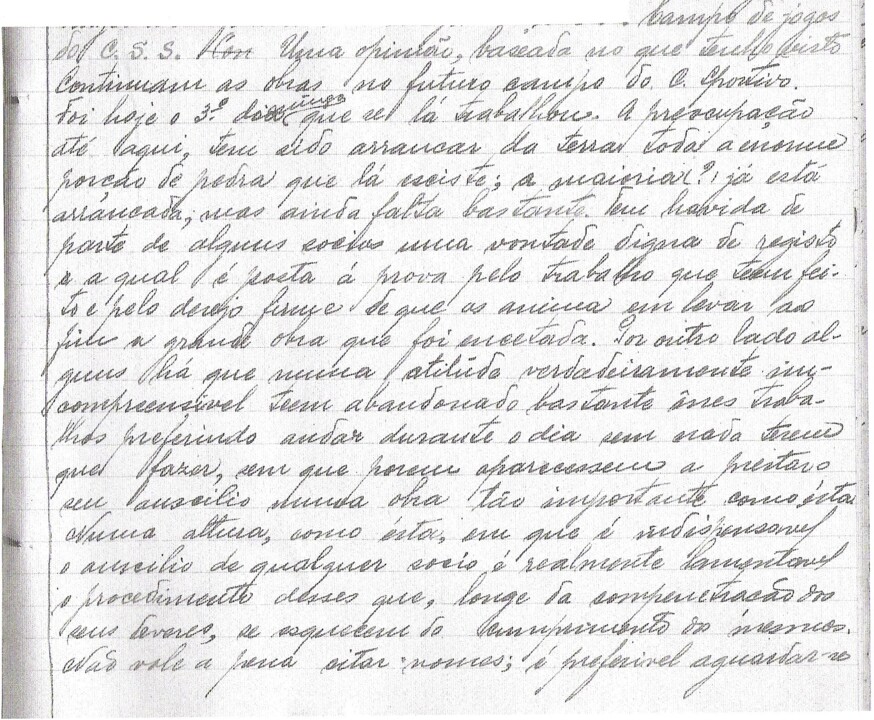 Campo de jogos
do C. S. S. Uma opinião, baseada no que tenho visto
Continuam as obras no futuro campo do C. Sportivo.
Foi hoje o 3.º que se lá trabalhou. A preocupação
até aqui, tem sido arrancar da terra toda a enorme
porção de pedra que lá esciste; a maioria (?) já está
arrancada, mas ainda falta bastante. Tem havida de
parte de alguns socios uma vontade digna de registo
a qual é posta á prova pelo trabalho que teem fei-
to e pelo desejo firme de que os anima em levar ao
fim a grande obra que foi encetada. Por outro lado al-
guns há que numa atitúde verdadeiramente in-
compreensivel teem abandonado bastante ênes traba-
lhos preferindo andar durante o dia sem nada terem
que fazer, sem que porem aparecessem a prestar o
seu auscilio numa obra tão importante como ésta
Numa altura, como ésta, em que é indispensavel
o auscilio de qualquer socio é realmente lamentavel
o procedimento desses que, longe da compenetração dos
seus deveres, se esquecem do cumprimento dos mesmos.
Não vale a pena citar nomes; é preferivel aguardar-se